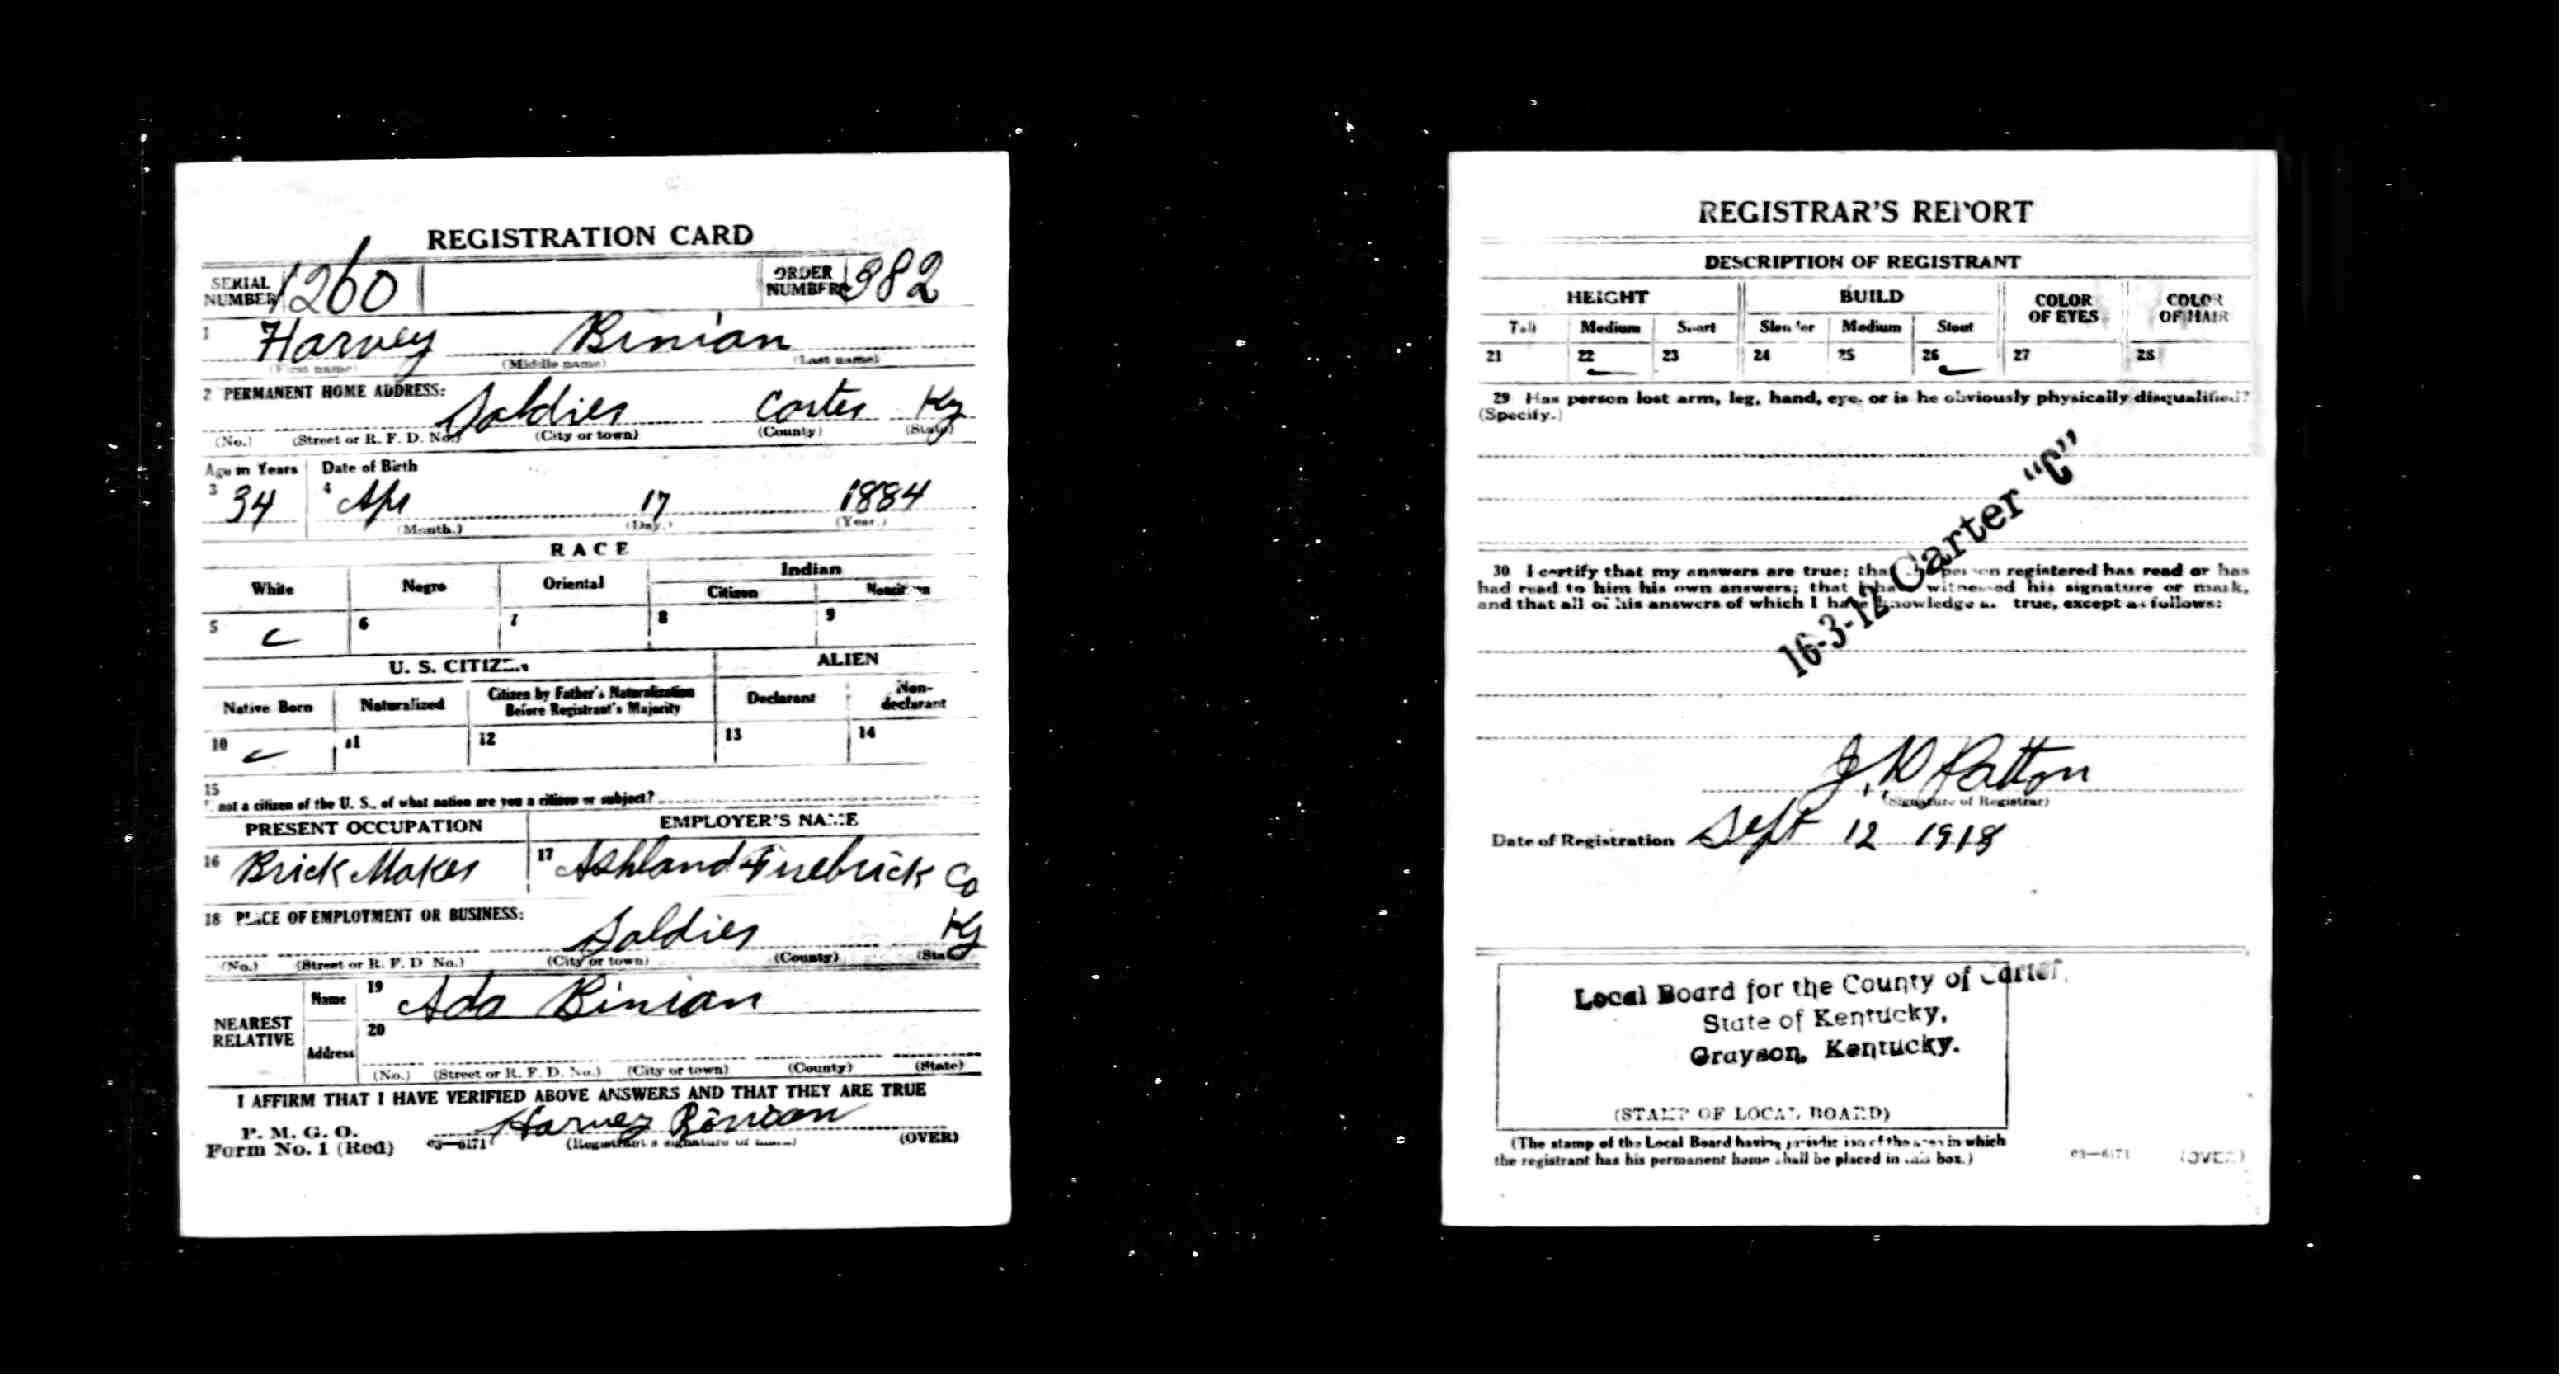 REGISTRATION CARD
SERIAL NUMBER 1260 ORDER NUMBER 382
1 Harvey Binian
(First name) (Middle name) (Last name)
2 PERMANENT HOME ADDRESS: Soldier Carter Ky
(No.) (Street or R. F. D. No.) (City or town) (County) (State)
Age in Years Date of Birth
3 34 4 Apr 17 1884
(Month.) (Day.) (Year.)
RACE
White Negro Oriental Indian
Citizen Noncitizen
5 6 7 8 9
U. S. CITIZEN ALIEN
Native Born Naturalized Citizen by Father's Naturalization Before Registrant's Majority Declarant Non-declarant
10 11 12 13 14
15
If not a citizen of the U. S., of what nation are you a citizen or subject?
PRESENT OCCUPATION EMPLOYER'S NAME
16 Brick Maker 17 Ashland Firebrick Co
18 PLACE OF EMPLOYMENT OR BUSINESS:
Soldier Ky
(No.) (Street or R. F. D. No.) (City or town) (County) (State)
NEAREST RELATIVE
Name 19 Ada Binian
Address 20
(No.) (Street or R. F. D. No.) (City or town) (County) (State)
I AFFIRM THAT I HAVE VERIFIED ABOVE ANSWERS AND THAT THEY ARE TRUE
P. M. G. O.
Form No. 1 (Red) 03—6171 Harvey Binion (OVER)
(Registrant's signature or mark)
REGISTRAR'S REPORT
DESCRIPTION OF REGISTRANT
HEIGHT BUILD COLOR OF EYES COLOR OF HAIR
Tall Medium Short Slender Medium Stout
21 22 23 24 25 26 27 28
29 Has person lost arm, leg, hand, eye, or is he obviously physically disqualified?
(Specify.)
16-3-12 Carter "C"
30 I certify that my answers are true; that the person registered has read or has
had read to him his own answers; that I have witnessed his signature or mark,
and that all of his answers of which I have knowledge are true, except as follows:
J. D. Patton
(Signature of Registrar)
Date of Registration Sept 12 1918
Local Board for the County of Carter,
State of Kentucky,
Grayson, Kentucky.
(STAMP OF LOCAL BOARD)
(The stamp of the Local Board having jurisdiction of the area in which
the registrant has his permanent home shall be placed in this box.)
03—6171 (OVER)